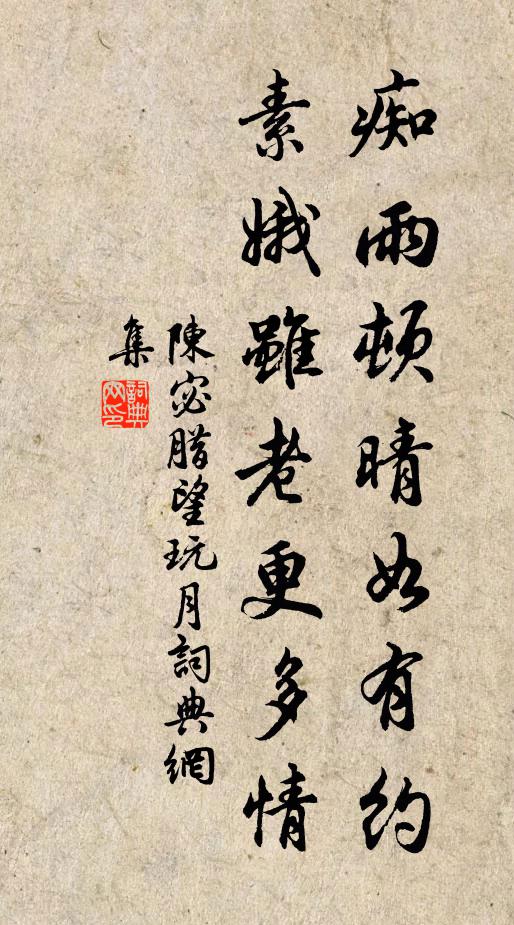 痴雨頓晴如有約
素娥雖老更多情
陳宓腊望玩月詞典網
集
詞典
網印